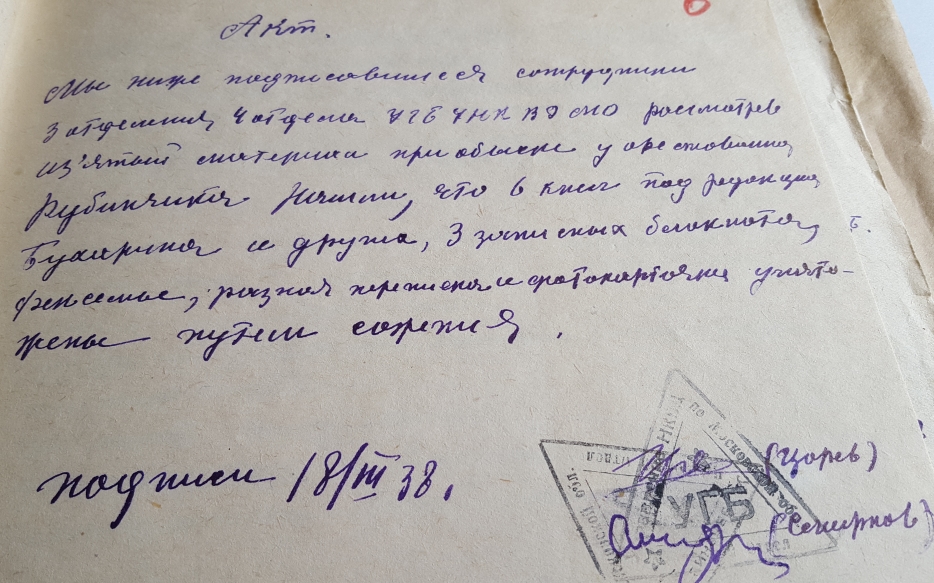 Акт.
Мы ниже подписавшиеся сотрудники
3 отделения 4 отдела УГБ УНКВД МО россмотрев
из'ятый материал при обыске у арестованна
Рубинчика нашли, что 6 книг под редакции
Бухарина и друга, 3 записных блокнота, Б.
разная переписка и фотокарточки уничто-
жены путем сожжения.
подписи 18/III 38.
(Царев)
УГБ
(Смирнов)